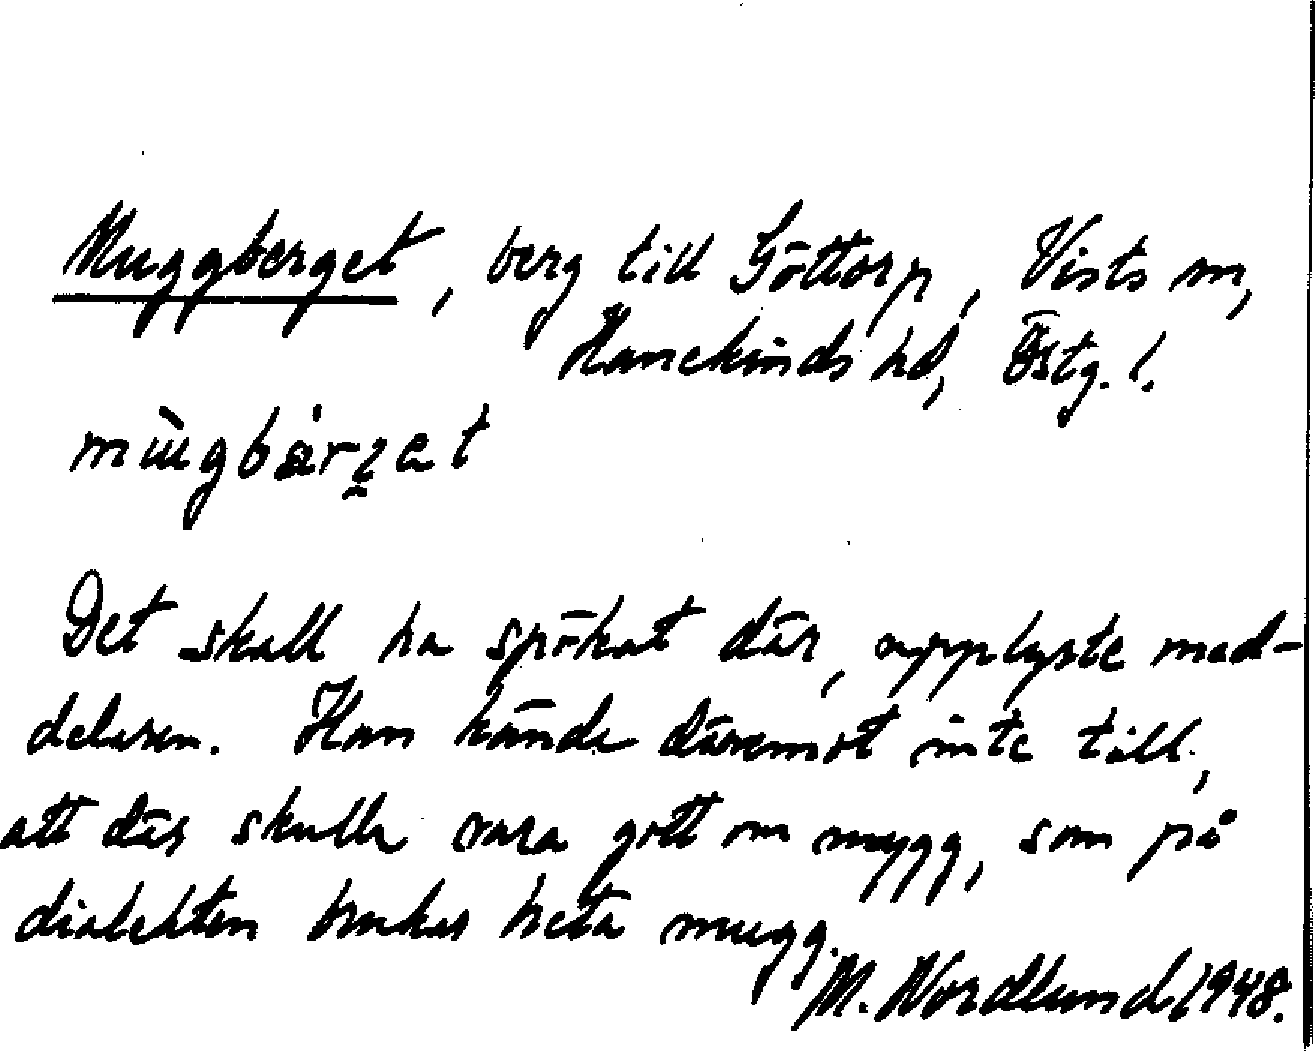 Muggberget, berg till Göttorp, Vists sn,
Hanekinds hd, Östg. l.
Det skall ha spökat där, upplyste med-
delaren. Han kände däremot inte till,
att där skulle vara gott om mygg, som på
dialekten brukar heta mugg.
M. Nordlund 1948.